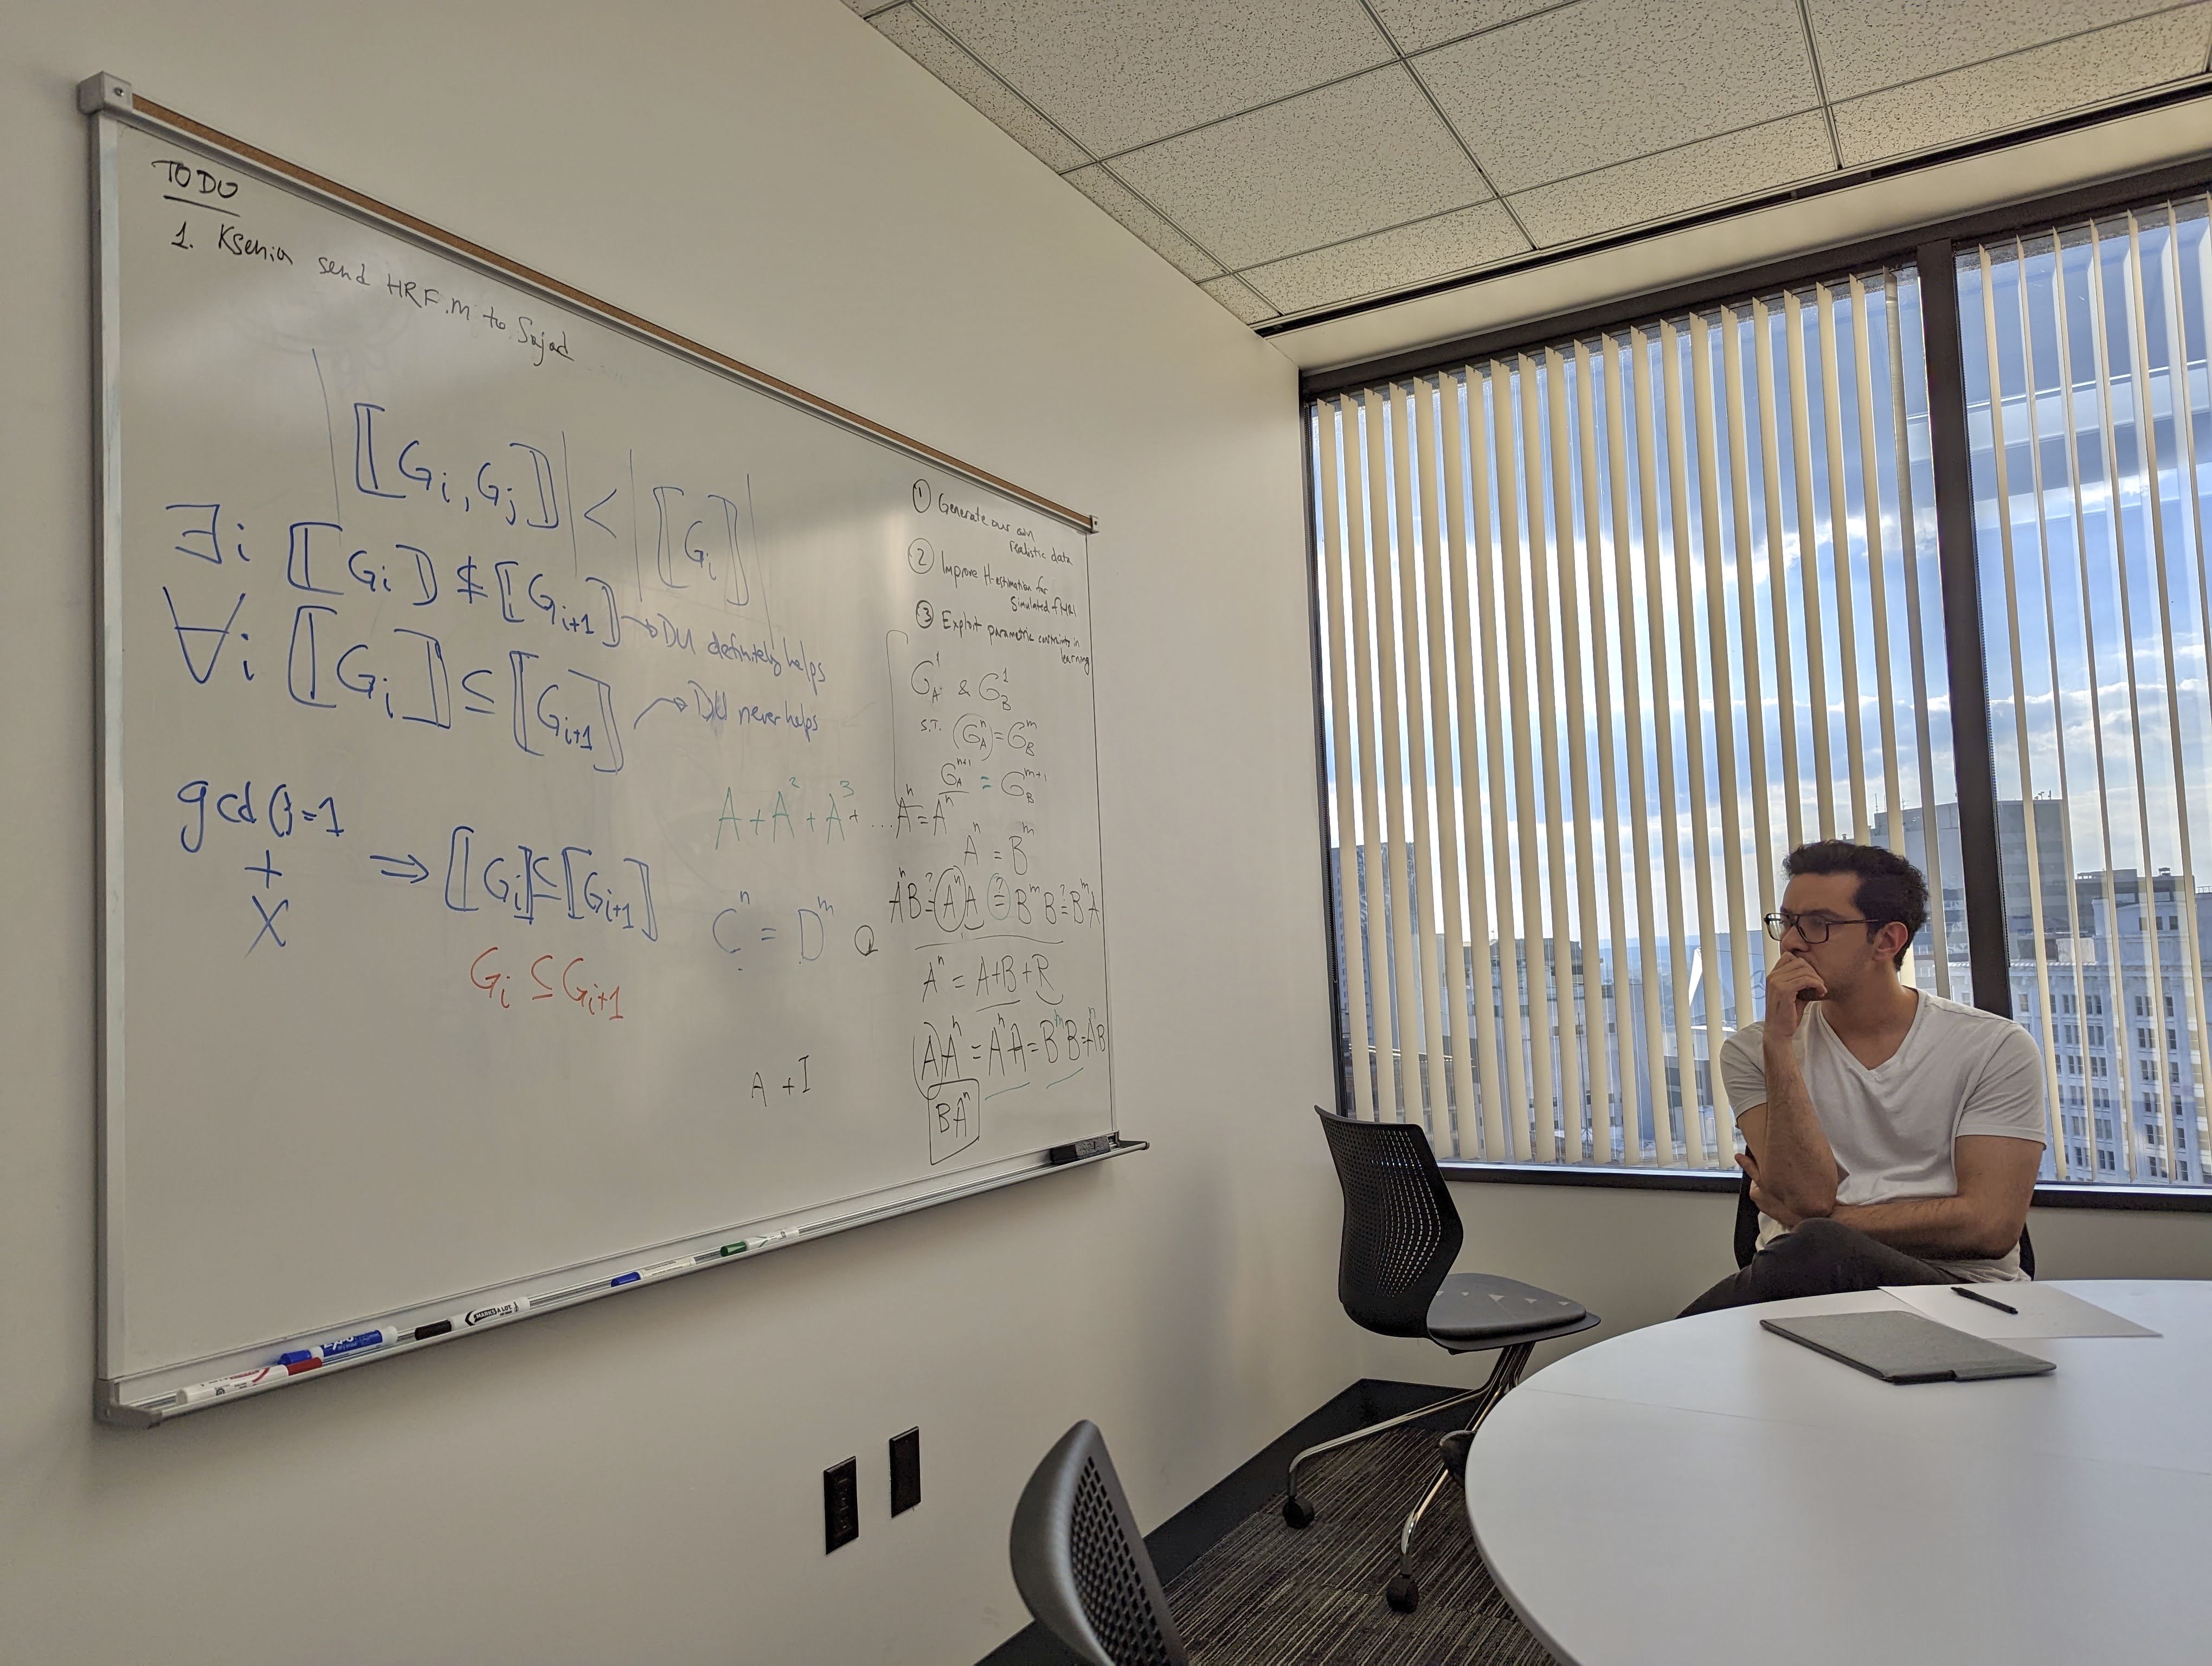 TODO
1. Ksenia send HRF.m to Sajad
|⟦Gi, Gj⟧| < |⟦Gi⟧|
∃i ⟦Gi⟧ ⊈ ⟦Gi+1⟧ → DU definitely helps
∀i ⟦Gi⟧ ⊆ ⟦Gi+1⟧ → DU never helps
gcd()=1
+
X
⇒ ⟦Gi⟧ ⊆ ⟦Gi+1⟧
Gi ⊆ Gi+1
A + A² + A³ + ... Aⁿ = Aⁿ
Cⁿ = Dᵐ
A + I
① Generate our own
realistic data
② Improve H-estimation for
simulated fMRI
③ Exploit parametric constraints in
learning
G_A¹ & G_B¹
S.T. G_Aⁿ = G_Bᵐ
G_Aⁿ⁺¹ = G_Bᵐ⁺¹
Aⁿ = Bᵐ
AⁿB ≟ AⁿA ≟ BᵐB ≟ BᵐA
Aⁿ = A+B+R
AAⁿ = AⁿA = BᵐB = AⁿB
BAⁿ
EXPO
MARKS A LOT